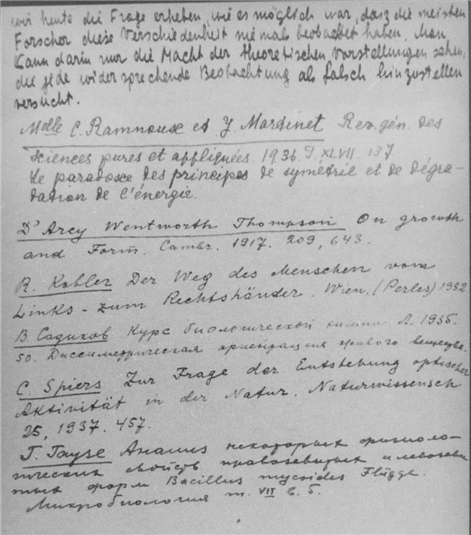 wir heute die Frage erheben, wie es möglich war, dasz die meisten
Forscher diese Verschiedenheit niemals beobachtet haben. Man
kann darin nur die Macht der theoretischen Vorstellungen sehen,
die jede widersprechende Beobachtung als falsch hinzustellen
versucht.
Melle C. Ramnoux et J. Mardinet Rev. gén. des
sciences pures et appliquées. 1936. T. XLVII. 137
Le paradoxe des principes de symétrie et de dégra-
dation de l'énergie.
D'Arcy Wentworth Thompson On growth
and Form. Cambr. 1917. 209, 643.
R. Kobler Der Weg des Menschen vom
Links- zum Rechtshänder. Wien. (Perles) 1932
В. Садиков Курс биологической химии Л. 1935.
50. Диссиметрическая ориентация живого вещества.
C. Spiers Zur Frage der Entstehung optischer
Aktivität in der Natur. Naturwissensch
25, 1937. 457.
Г. Гаузе Анализ некоторых физиоло-
гических свойств правозавитых и левозави
тых форм Bacillus mycoides Flügge.
Микробиология т. VII в. 5.